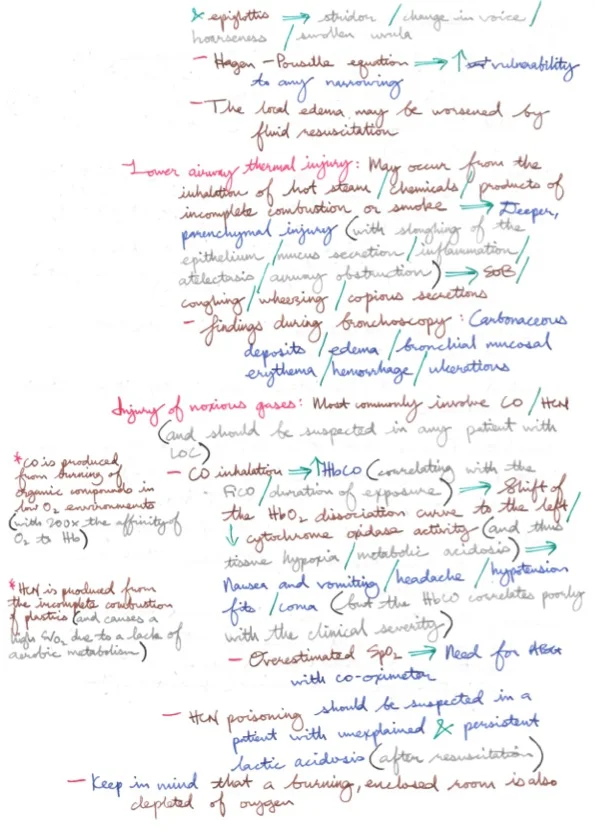 & epiglottis → stridor / change in voice /
hoarseness / swollen uvula
- Hagen-Pouseille equation → ↑ vulnerability
to any narrowing
- The local edema may be worsened by
fluid resuscitation
Lower airway thermal injury: May occur from the
inhalation of hot steam / chemicals / products of
incomplete combustion or smoke → Deeper,
parenchymal injury (with sloughing of the
epithelium / mucus secretion / inflammation /
atelectasis / airway obstruction) → SOB /
coughing / wheezing / copious secretions
- findings during bronchoscopy: Carbonaceous
deposits / edema / bronchial mucosal
erythema / hemorrhage / ulcerations
Injury of noxious gases: Most commonly involve CO / HCN
(and should be suspected in any patient with
LOC)
- CO inhalation → ↑HbCO (correlating with the
FiCO / duration of exposure) → Shift of
the HbO2 dissociation curve to the left /
↓ cytochrome oxidase activity (and thus
tissue hypoxia / metabolic acidosis) →
Nausea and vomiting / headache / hypotension
fits / coma (but the HbCO correlates poorly
with the clinical severity)
*CO is produced
from burning of
organic compounds in
low O2 environments
(with 200x the affinity of
O2 to Hb)
*HCN is produced from
the incomplete combustion
of plastics (and causes a
high SvO2 due to a lack of
aerobic metabolism)
- Overestimated SpO2 → Need for ABG
with co-oximeter
- HCN poisoning should be suspected in a
patient with unexplained & persistent
lactic acidosis (after resuscitation)
- Keep in mind that a burning, enclosed room is also
depleted of oxygen